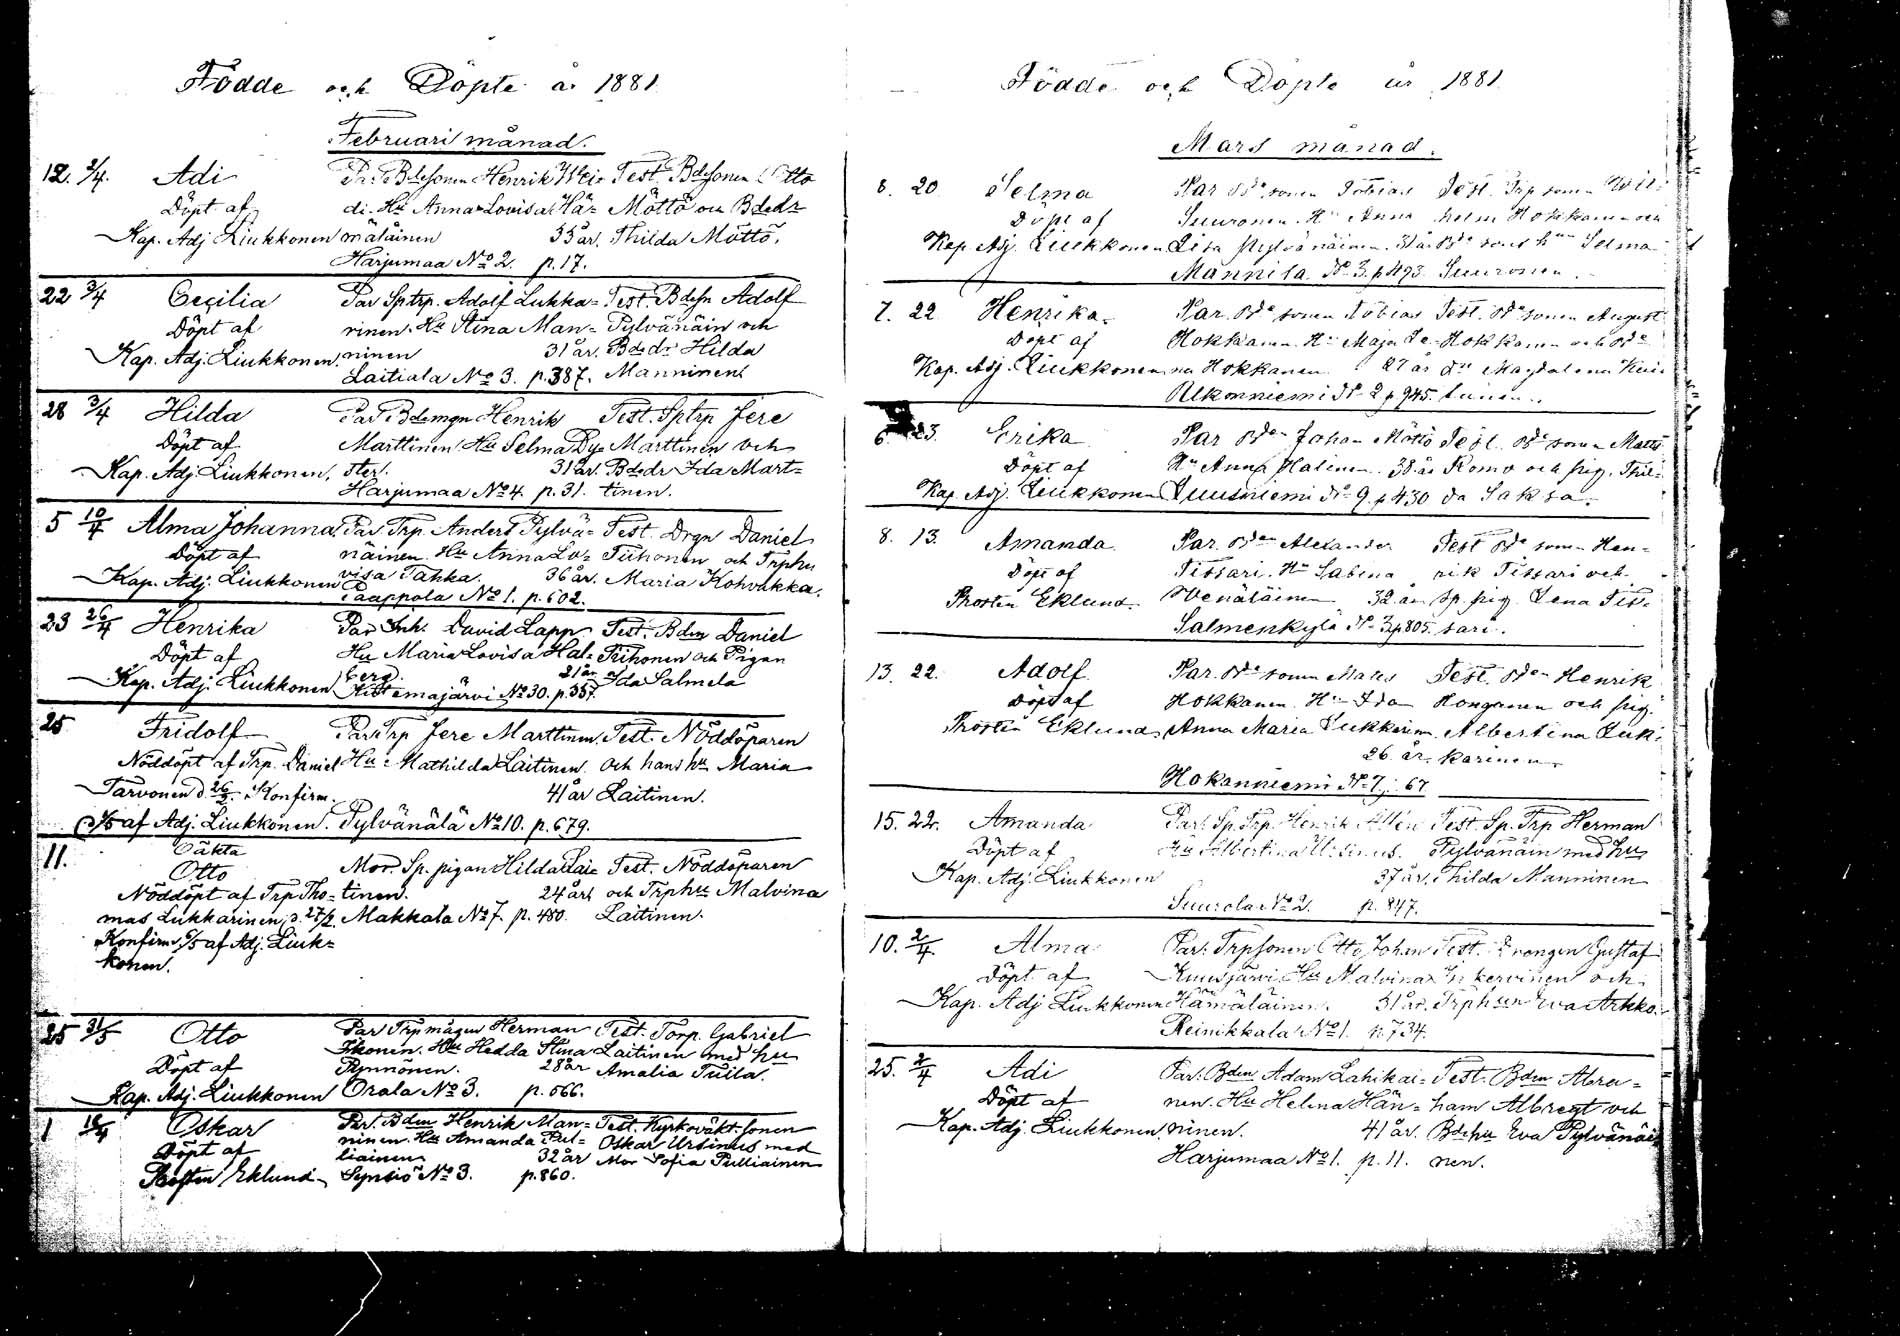 Födde och Döpte år 1881
Februari månad.
12. 2/4. Adi Par. Bdesonen Henrik Mei= Test. Bdesonen Otto
Döpt af di. Hu Anna Lovisa Hä= Möttö och Bdedr
Kap. Adj Liukkonen mäläinen 35 år. Thilda Möttö.
Harjumaa No 2. p. 17.
22 3/4 Cecilia Par Sptrp. Adolf Lukka= Test. Bdesn Adolf
Döpt af rinen. Hu Stina Man= Pylvänäin och
Kap. Adj. Liukkonen. ninen 31 år. Bdedr Hilda
Laitiala No 3. p. 387. Manninen
28 3/4 Hilda Par Bdemgn Henrik Test. Sptrp Jere
Döpt af Marttinen. Hu Selma Dy= Marttinen och
Kap. Adj. Liukkonen. ster. 31 år. Bdedr Ida Mart=
Harjumaa No 4. p. 31. tinen.
5 10/4 Alma Johanna. Par. Trp. Anders Pylvä= Test. Drgn Daniel
Döpt af näinen. Hu Anna Lo= Tiihonen och Trphu
Kap. Adj. Liukkonen visa Tahka. 36 år. Maria Kohvakka.
Paappola No 1. p. 602.
23 26/4 Henrika Par Inh. David Lapp Test. Bden Daniel
Döpt af Hu Maria Lovisa Hal= Tiihonen och Pigan
Kap. Adj. Liukkonen berg. 21 år Ida Salmela
Kiitemajärvi No 30. p. 357.
25 Fridolf Par Trp Jere Marttinen. Test. Nöddöparen
Nöddöpt af Trp. Daniel Hu Mathilda Laitinen. och hans hu Maria
Tarvonen d. 26/2. Konfirm. 41 år Laitinen.
af Adj. Liukkonen. Pylvänälä No 10. p. 679.
11. Oäkta
Otto Mor. Sp. pigan Hilda Lai= Test. Nöddöparen
Nöddöpt af Trp Tho= tinen. 24 år och Trphu Malvina
mas Lukkarinen, d. 27/2. Makkala No 7. p. 480. Laitinen.
Konfirm. af Adj. Liuk=
konen.
25 31/5 Otto Par Trpmågen Herman Test. Torp. Gabriel
Ikonen. Hu Hedda Stina Laitinen med hu
Döpt af Pynnönen. 28 år Amalia Tuila.
Kap. Adj. Liukkonen Orala No 3. p. 566.
1 18/4 Oskar Par. Bden Henrik Man= Test. Kyrkoväkt. sonen
Döpt af ninen. Hu Amanda Pul= Oskar Ursinus med
liainen 32 år Mor Sofia Pulliainen
Prosten Eklund Synsiö No 3. p. 860.
Födde och Döpte år 1881
Mars månad.
8. 20. Selma Par Bdesonen Tobias Test. Trp sonen Wil=
Döpt af Suuronen. Hu Anna helm Hokkanen och
Kap. Adj. Liukkonen Lisa Pylvänäinen. 31 år Bdesons hu Selma
Mannila No 3. p 493 Suuronen.
7. 22 Henrika Par. Bdesonen Tobias Test. Bdesonen August
Döpt af Hokkanen. Hu Maja Le= Hokkanen och Bde
Kap. Adj. Liukkonen na Hokkanen 27 år dr Magdalena Kui=
Ulkonniemi No 2 p 945. tunen.
6. 23. Erika Par Bden Johan Möttö Test. Bdesonen Matts
Döpt af Hu Anna Halinen. 38 år Romo och pig. Thil=
Kap. Adj. Liukkonen Luusniemi No 9. p 430 da Saksa.
8. 13. Amanda Par. Bden Alexander Test Bdesonen Hen=
Döpt af Tissari. Hu Sabina rik Tissari och
Prosten Eklund. Wenäläinen 32 år sp. pig. Lena Tis=
Salmenkylä No 3. p 805. sari.
13. 22. Adolf Par. Bdesonen Mats Test. Bden Henrik
Döpt af Hokkanen. Hu Ida Honganen och pig.
Prosten Eklund Anna Maria Lukkarinen Albertina Luk=
26 år. karinen
Hokanniemi No 7. p. 67
15. 22. Amanda Par. Sp. Trp. Henrik Allén Test. Sp. Trp Herman
Döpt af Hu Albertina Ursinus. Pylvänäin med hu
Kap. Adj. Liukkonen 37 år. Thilda Manninen
Suurola No 2. p. 847.
10. 2/4 Alma Par. Trpsonen Otto Johan Test. Drongen Gustaf
Döpt af Kuusjärvi. Hu Malvina Inkervinen och
Kap. Adj Liukkonen Hämäläinen. 31 år. Trphun Eva Arkko.
Reinikkala No 1. p. 734.
25. 2/4 Adi Par. Bden Adam Lahikai= Test. Bden Abra=
Döpt af nen. Hu Helena Hän= ham Albregt och
Kap. Adj. Liukkonen. ninen. 41 år. Bdehu Eva Pylvänäi
Harjumaa No 1. p. 11. nen.